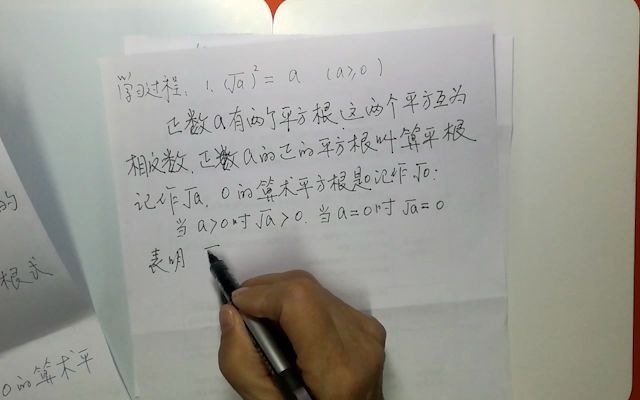 学习过程: 1. (√a)² = a (a≥0)
正数a有两个平方根,这两个平方互为
相反数.正数a的正的平方根叫算平根
记作√a, 0的算术平方根是0记作√0:
当a>0时√a>0. 当a=0时 √a=0
表明
的
根式
0的算术平